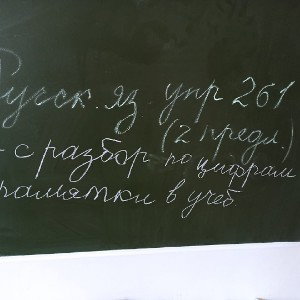 Русск. яз. упр 261
(2 предл.)
- с разбор по цифрам
памятки в учеб